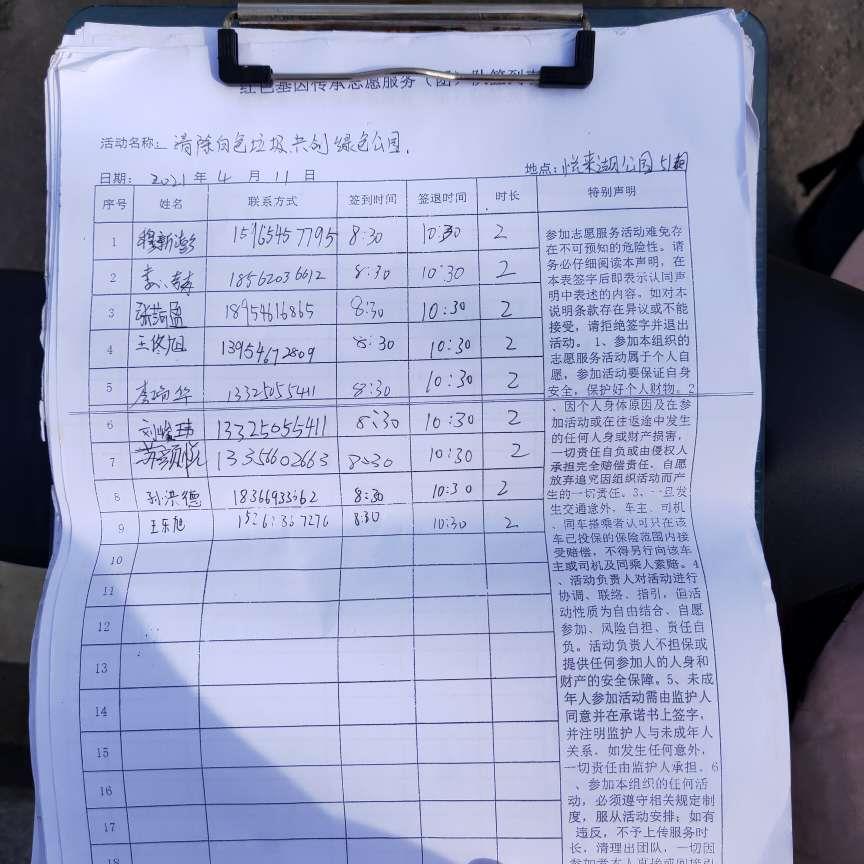 红色基因传承志愿服务(团)队签到表
活动名称: 清除白色垃圾共创绿色公园.
日期: 2021 年 4 月 11 日 地点:悦来湖公园
序号 姓名 联系方式 签到时间 签退时间 时长 特别声明
1 15965457795 8:30 10:30 2
2 18562036612 8:30 10:30 2
3 18954616865 8:30 10:30 2
4 王俊旭 13954672809 8:30 10:30 2
5 李瑞华 13325055411 8:30 10:30 2
6 刘俊玮 13325055411 8:30 10:30 2
7 13356602663 8:30 10:30 2
8 孙洪德 8:30 10:30 2
9 王乐旭 8:30 10:30 2
10
11
12
13
14
15
16
17
18
参加志愿服务活动难免存
在不可预知的危险性。请
务必仔细阅读本声明,在
本表签字后即表示认同声
明中表述的内容。如对本
说明条款存在异议或不能
接受,请拒绝签字并退出
活动。 1、参加本组织的
志愿服务活动属于个人自
愿,参加活动要保证自身
安全,保护好个人财物。2
、因个人身体原因及在参
加活动或在往返途中发生
的任何人身或财产损害,
一切责任自负或由侵权人
承担完全赔偿责任,自愿
放弃追究因组织活动而产
生的一切责任。3、一旦发
生交通意外,车主、司机
、同车搭乘者认可只在该
车已投保的保险范围内接
受赔偿,不得另行向该车
主或司机及同乘人索赔。4
、活动负责人对活动进行
协调、联络、指引,但活
动性质为自由结合、自愿
参加、风险自担、责任自
负。活动负责人不担保或
提供任何参加人的人身和
财产的安全保障。5、未成
年人参加活动需由监护人
同意并在承诺书上签字,
并注明监护人与未成年人
关系,如发生任何意外,
一切责任由监护人承担。6
、参加本组织的任何活
动,必须遵守相关规定制
度,服从活动安排;如有
违反,不予上传服务时
长,清理出团队,一切因